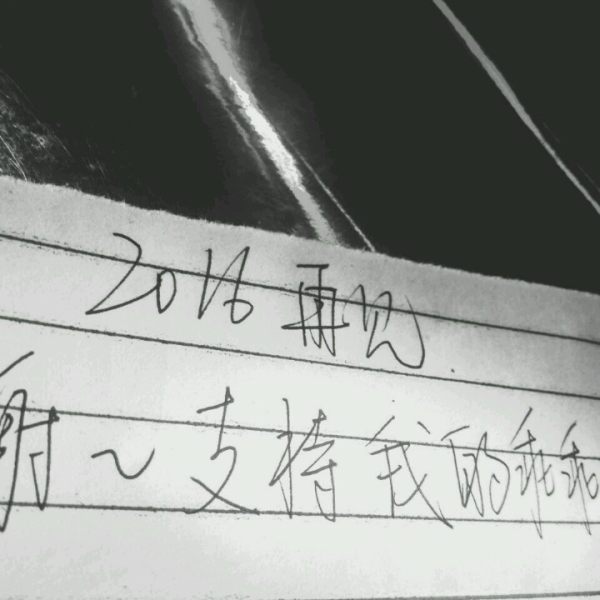 2016 再见.
谢~支持我的乖乖